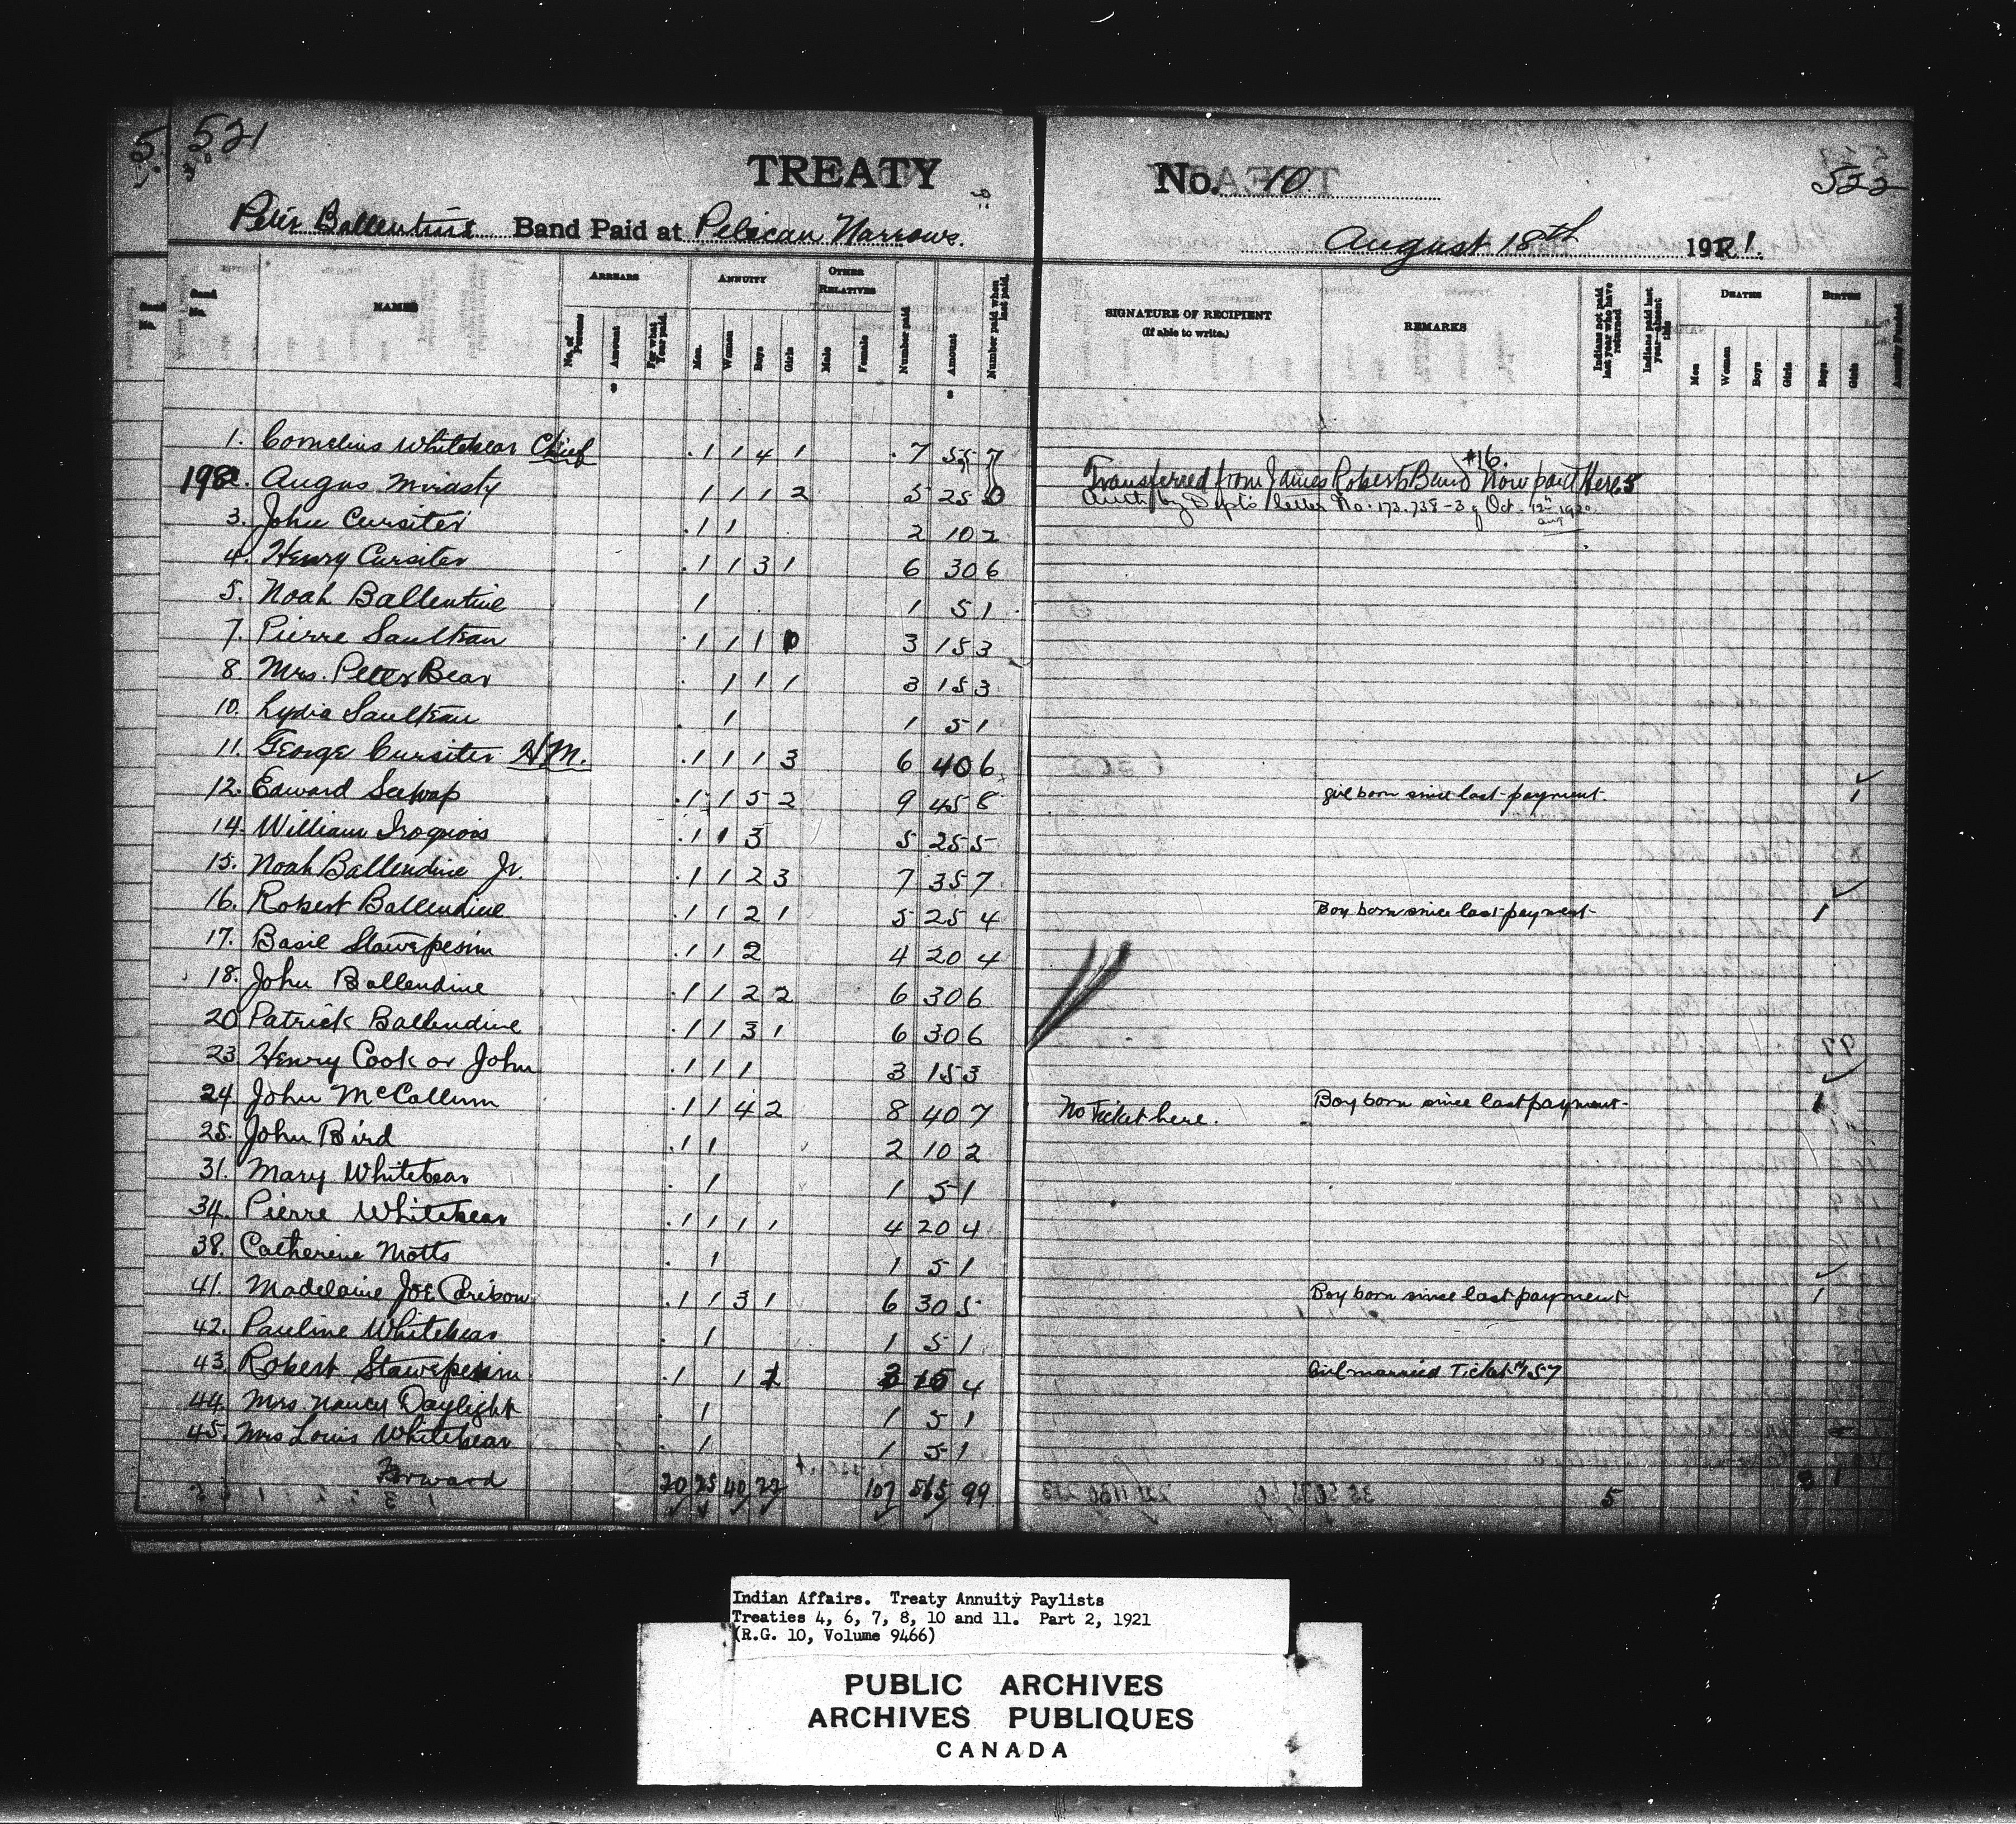 5 521
TREATY No. 10. 522
Peter Ballentine Band Paid at Pelican Narrows. August 18th 1921.
Band No. NAMES ARREARS ANNUITY OTHER RELATIVES Number paid Amount Number paid when last paid. SIGNATURE OF RECIPIENT (If able to write.) REMARKS Indians not paid last year who have returned Indians paid last year—absent this DEATHS BIRTHS Annuity Funded
No. of Persons Amount For what Year paid. Men. Women Boys Girls Male Female Men Women Boys Girls Boys Girls
1. Cornelius Whitebear Chief 1 1 4 1 7 55 7
198 2. Angus Mirasty 1 1 1 2 5 25 0 Transferred from James Roberts Band #16. Now paid Here. 5
Auth by Dept's letter No. 173.738-3 of Oct. 12th 1920
3. John Cursiter 1 1 2 10 2
4. Henry Cursiter 1 1 3 1 6 30 6
5. Noah Ballentine 1 1 5 1
7. Pierre Saulteau 1 1 1 0 3 15 3
8. Mrs. Peter Bear 1 1 1 3 15 3
10. Lydia Saulteau 1 1 5 1
11. George Cursiter H.M. 1 1 1 3 6 40 6
12. Edward Seewap 1 1 5 2 9 45 8 girl born since last payment. 1
14. William Iroquois 1 1 3 5 25 5
15. Noah Ballendine Jr. 1 1 2 3 7 35 7
16. Robert Ballendine 1 1 2 1 5 25 4 Boy born since last payment 1
17. Basil Stawepesim 1 1 2 4 20 4
18. John Ballendine 1 1 2 2 6 30 6
20 Patrick Ballendine 1 1 3 1 6 30 6
23. Henry Cook or John 1 1 1 3 15 3
24 John McCallum 1 1 4 2 8 40 7 No Ticket here. Boy born since last payment 1
25. John Bird 1 1 2 10 2
31. Mary Whitebear 1 1 5 1
34. Pierre Whitebear 1 1 1 1 4 20 4
38. Catherine Motts 1 1 5 1
41. Madelaine Joe Caribou 1 1 3 1 6 30 5 Boy born since last payment 1
42. Pauline Whitebear 1 1 5 1
43. Robert Stawepesim 1 1 1 3 15 4 Girl married Ticket #157
44. Mrs. Nancy Daylight 1 1 5 1
45. Mrs Louis Whitebear 1 1 5 1
Forward 20 25 40 22 107 565 99 5 3 1
Indian Affairs. Treaty Annuity Paylists
Treaties 4, 6, 7, 8, 10 and 11. Part 2, 1921
(R.G. 10, Volume 9466)
PUBLIC ARCHIVES
ARCHIVES PUBLIQUES
CANADA